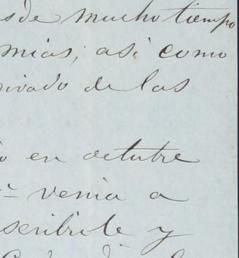 sde mucho tiempo
mias, asi como
rivado de las
o en octubre
venia a
scribirte y